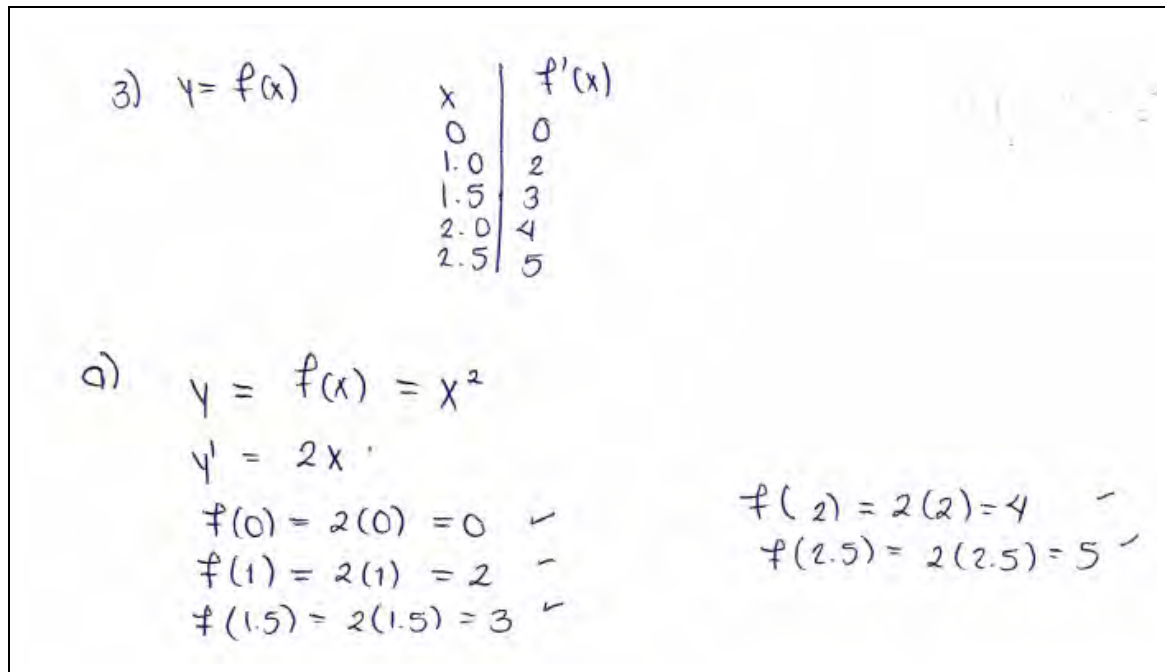 3) y = f(x)
x | f'(x)
0 | 0
1.0 | 2
1.5 | 3
2.0 | 4
2.5 | 5
a) y = f(x) = x²
y' = 2x
f(0) = 2(0) = 0 ✓
f(1) = 2(1) = 2 ✓
f(1.5) = 2(1.5) = 3 ✓
f(2) = 2(2) = 4 ✓
f(2.5) = 2(2.5) = 5 ✓